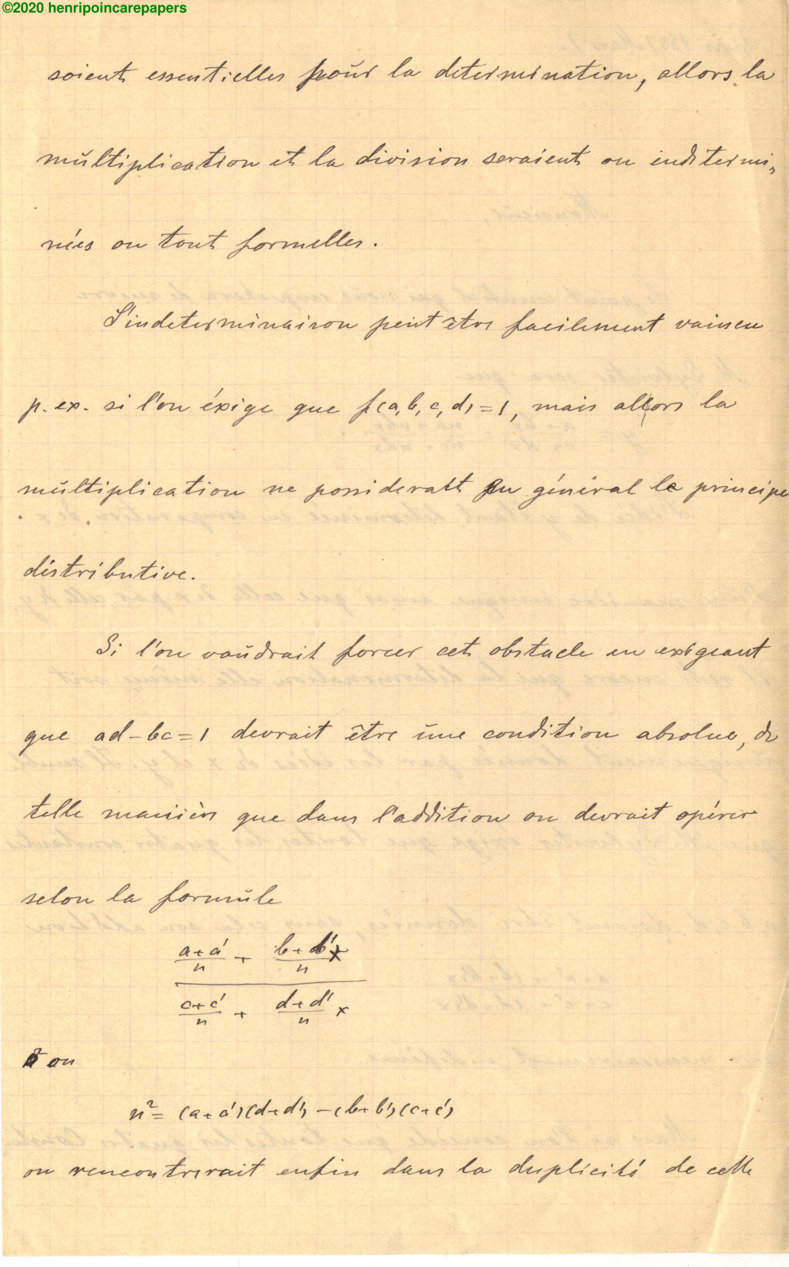 ©2020 henripoincarepapers
soient essentielles pour la determination, allors la
multiplication et la division seraient ou indetermi-
nées ou tout formelles.
L'indeterminaison peut être facilement vaincu
p. ex. si l'on éxige que f(a,b,c,d)=1, mais allors la
multiplication ne possideratt en général le principe
distributive.
Si l'on voudrait forcer cet obstacle en exigeant
que ad-bc=1 devrait être une condition absolue, de
telle manière que dans l'addition on devrait opérer
selon la formule
(a+a')/n + (b+b')/n x
(c+c')/n + (d+d')/n x
ou
n²= (a+a')(d+d')-(b+b')(c+c')
on rencontrerait enfin dans la duplicité de cette